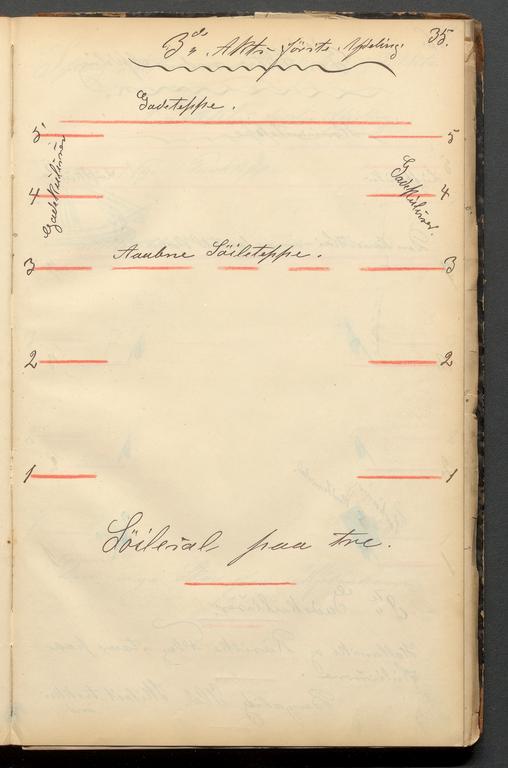 35.
3de Akts første Afdeling.
Gadeteppe.
5 5
Gadekulisser Gadekulisser
4 4
Aaabne Söileteppe.
3 3
2 2
1 1
Söilesal paa tre.